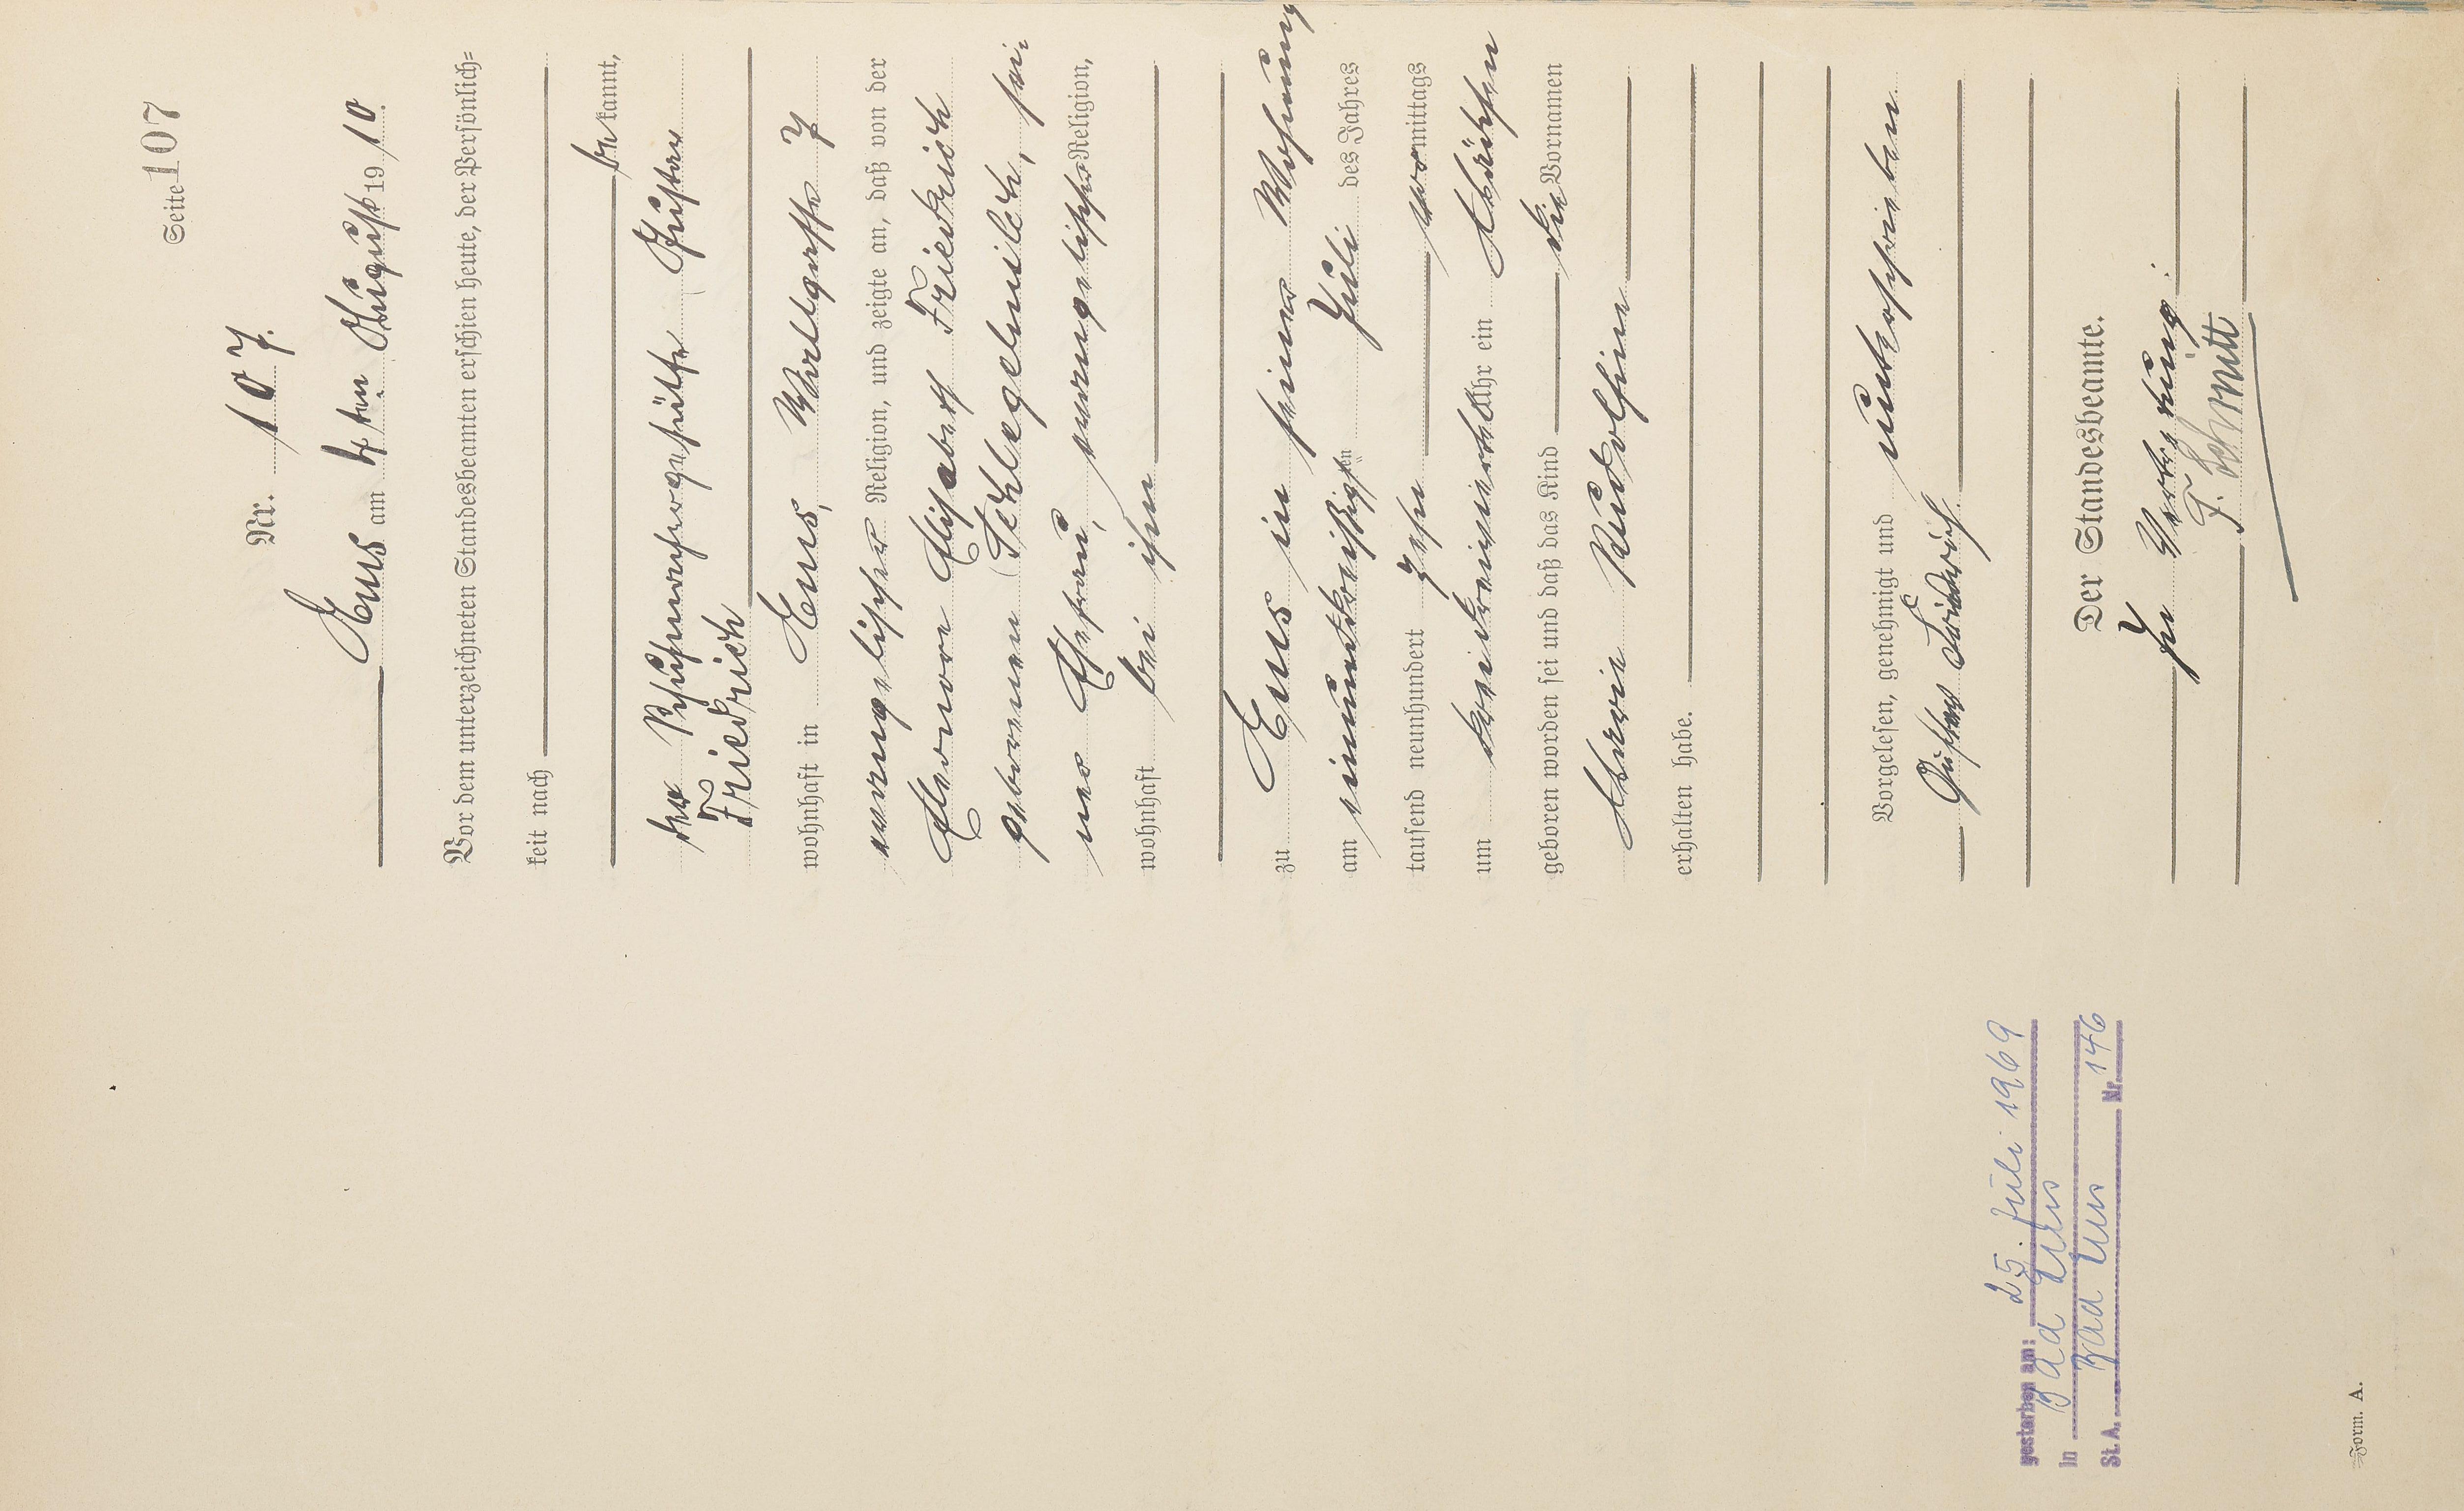 Seite 107
Nr. 107.
Ems am 4ten August 1910.
Vor dem unterzeichneten Standesbeamten erschien heute, der Persönlich=
keit nach
be kannt,
der Schuhmachergehülfe Gustav
Friedrich
wohnhaft in Ems, Wallgasse 7
evangelischer Religion, und zeigte an, daß von der
Eleonore Elisabeth Friedrich
geborenen Schlegelmilch, sei-
ner Ehefrau, evangelischer Religion,
wohnhaft bei ihm
zu Ems in seiner Wohnung
am einunddreißigsten Juli des Jahres
tausend neunhundert zehn vormittags
um dreidreiviertel Uhr ein Mädchen
geboren worden sei und daß das Kind die Vornamen
Maria Rudolfine
erhalten habe.
Vorgelesen, genehmigt und unterschrieben
Gustav Friedrich
Der Standesbeamte.
In Vertretung:
F. Schmitt
gestorben am: 25. Juli 1969
in Bad Ems
St. A. Bad Ems Nr. 146
Form. A.